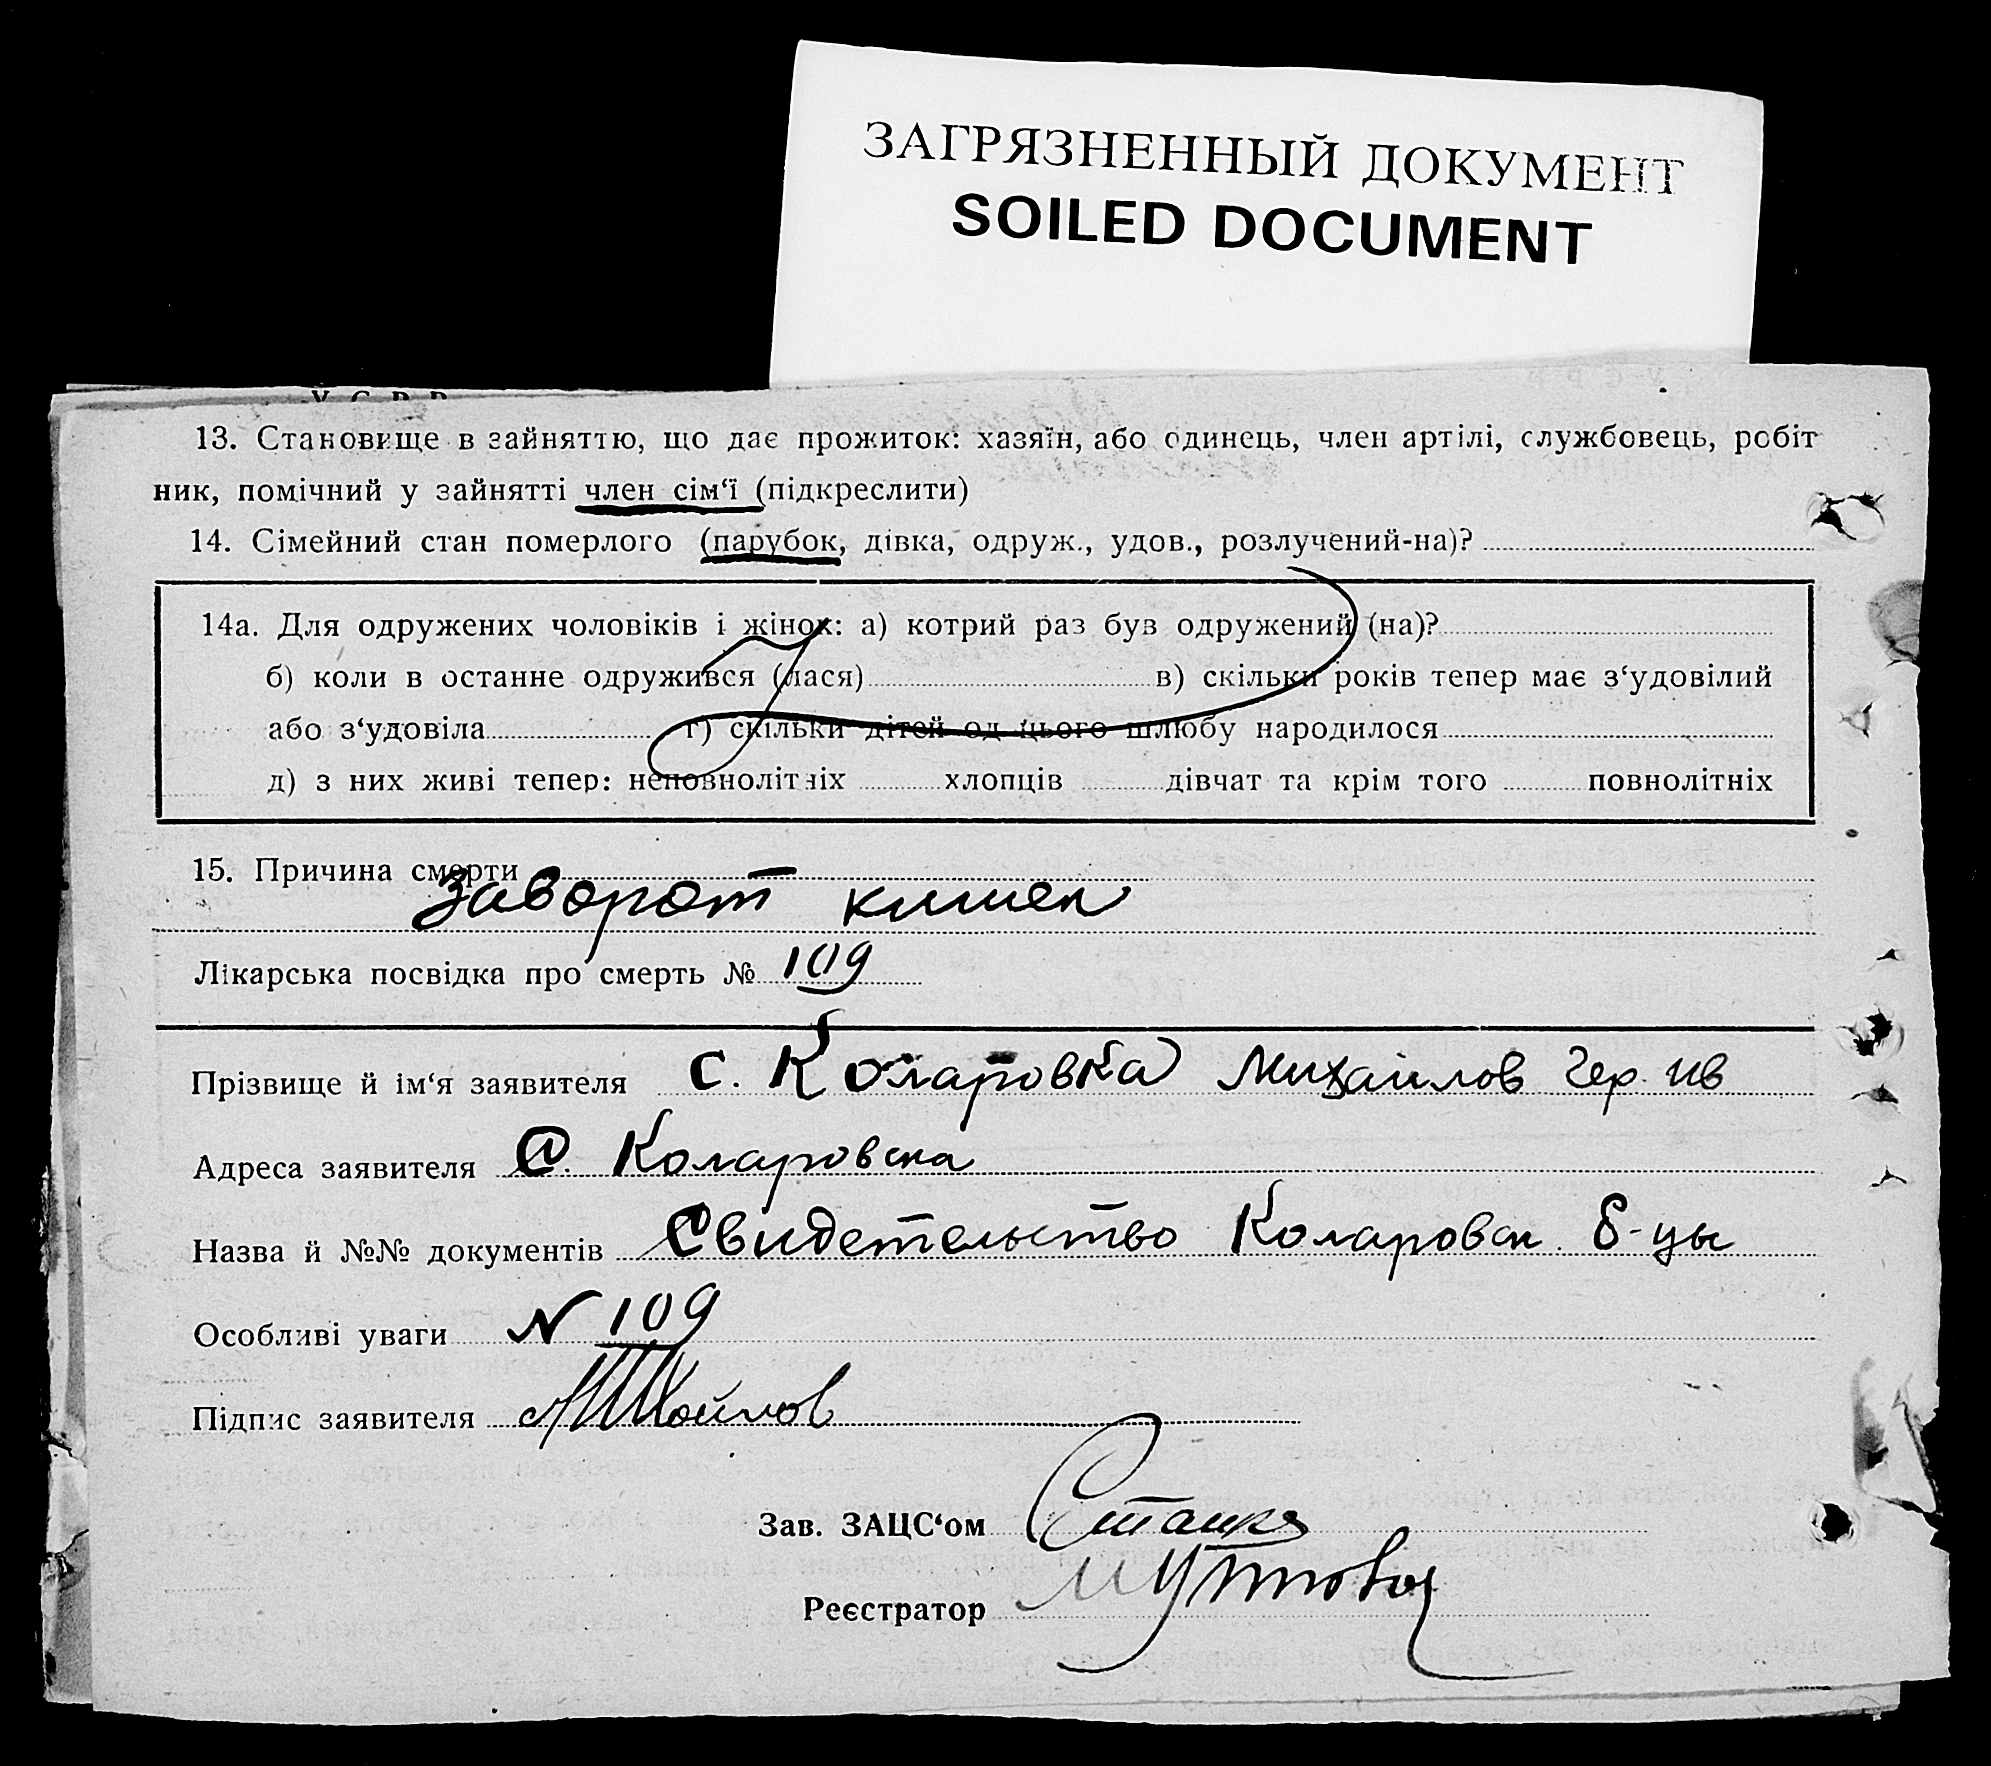 ЗАГРЯЗНЕННЫЙ ДОКУМЕНТ
SOILED DOCUMENT
У С Р Р
13. Становище в зайняттю, що дає прожиток: хазяїн, або одинець, член артілі, службовець, робіт
ник, помічний у зайнятті член сім‘ї (підкреслити)
14. Сімейний стан померлого (парубок, дівка, одруж., удов., розлучений-на)?
14а. Для одружених чоловіків і жінок: а) котрий раз був одружений (на)?
б) коли в останне одружився (лася) в) скільки років тепер має з‘удовілий
або з‘удовіла г) скільки дітей од цього шлюбу народилося
д) з них живі тепер: неповнолітніх хлопців дівчат та крім того повнолітніх
15. Причина смерти
Заворот кишек
Лікарська посвідка про смерть № 109
Прізвище й ім‘я заявителя с. Коларовка Михайлов Гер. Ив
Адреса заявителя с. Коларовка
Назва й №№ документів Свидетельство Коларовск. б-цы
Особливі уваги N 109
Підпис заявителя
Зав. ЗАЦС‘ом
Реєстратор